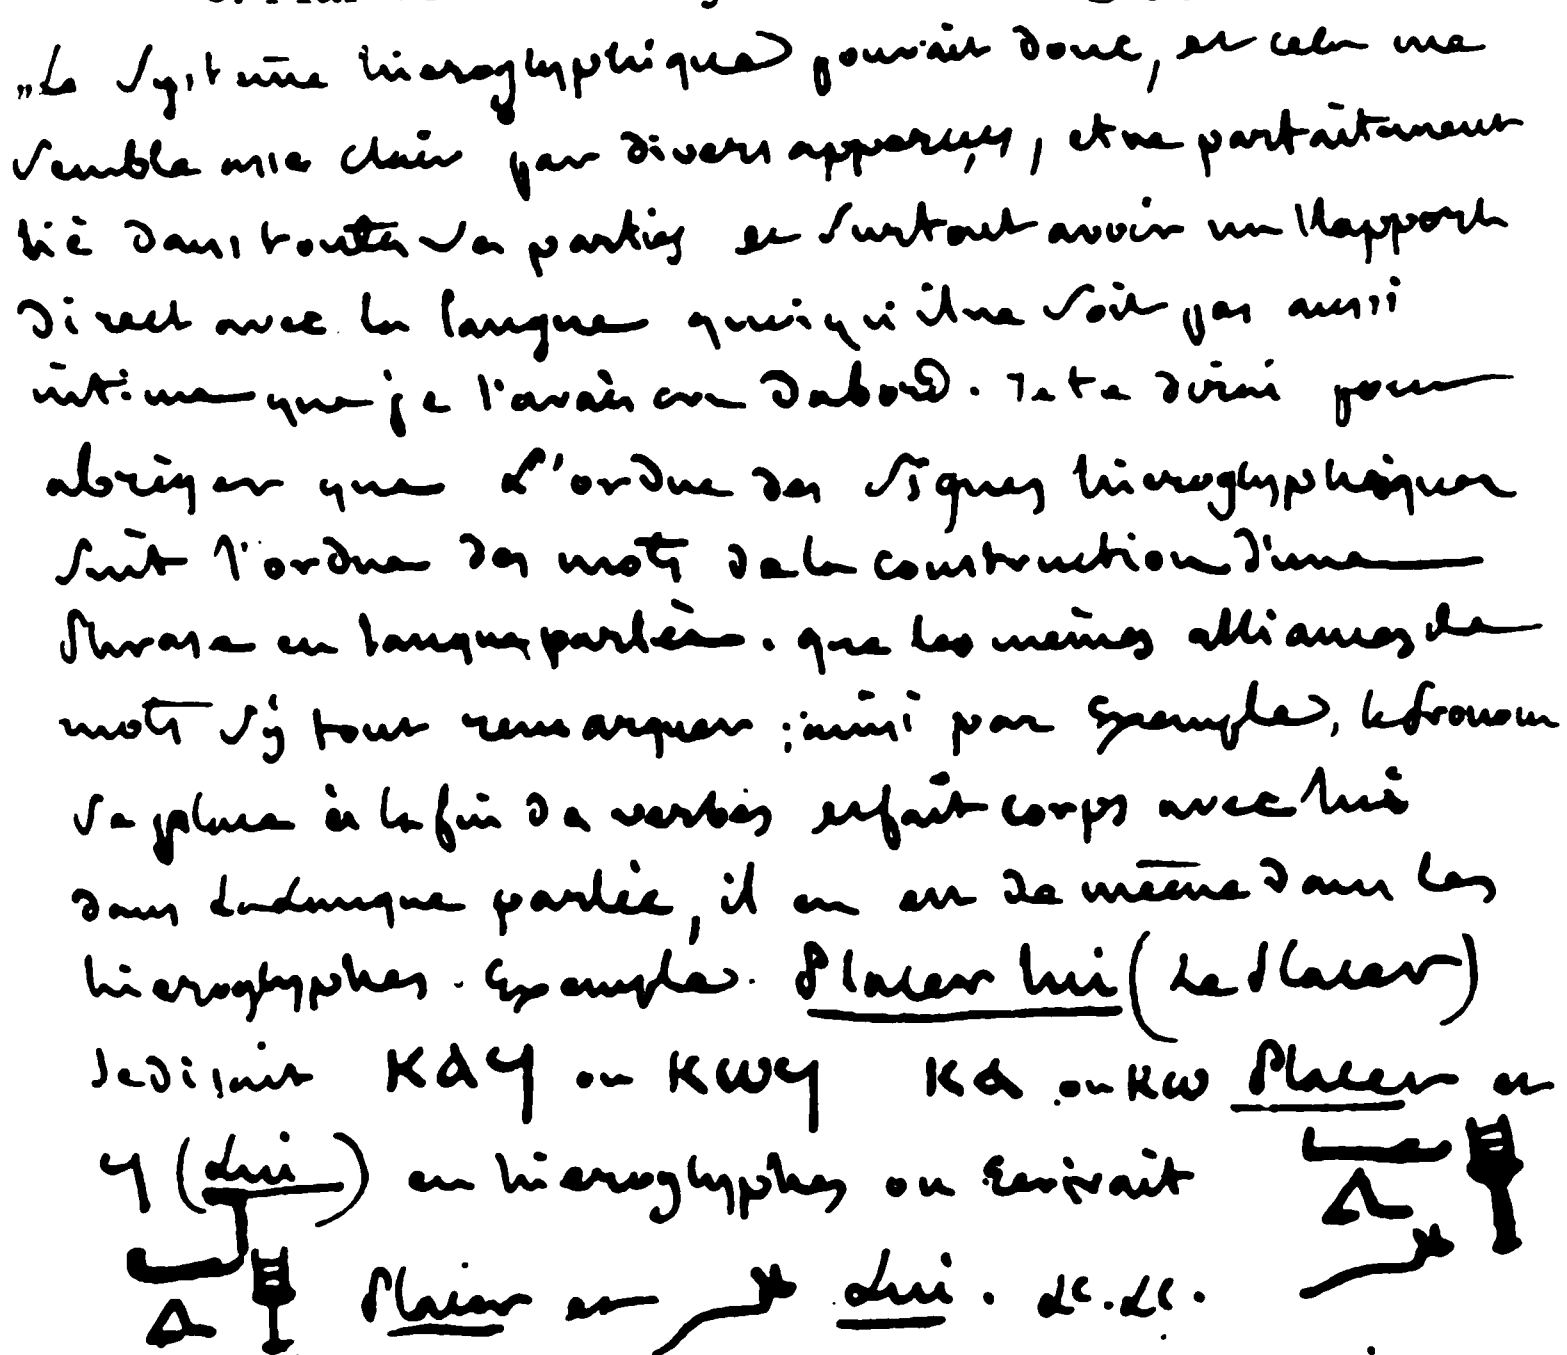 „Le Système hieroglyphique pouvait donc, et cela me
semble assez clair par divers apperçus, etre parfaitement
lié dans toutes ses parties et surtout avoir un Rapport
direct avec la langue quoiqu'il ne soit pas aussi
intime que je l'avais cru dabord. Je te dirai pour
abréger que L'ordre des signes hieroglyphiques
suit l'ordre des mots de la construction d'une
Phrase en langue parlée. que les mêmes alliances de
mots s'y font remarquer ; ainsi par Exemple, le Pronom
se place à la fin des verbes et fait corps avec lui
dans La Langue parlée, il en est de même dans les
hieroglyphes. Exemple. Placer lui (Le Placer)
se disait ⲕⲁϥ ou ⲕⲱϥ ⲕⲁ ou ⲕⲱ Placer et
ϥ (Lui) en hieroglyphes on Ecrivait
Placer et Lui. &c. &c.